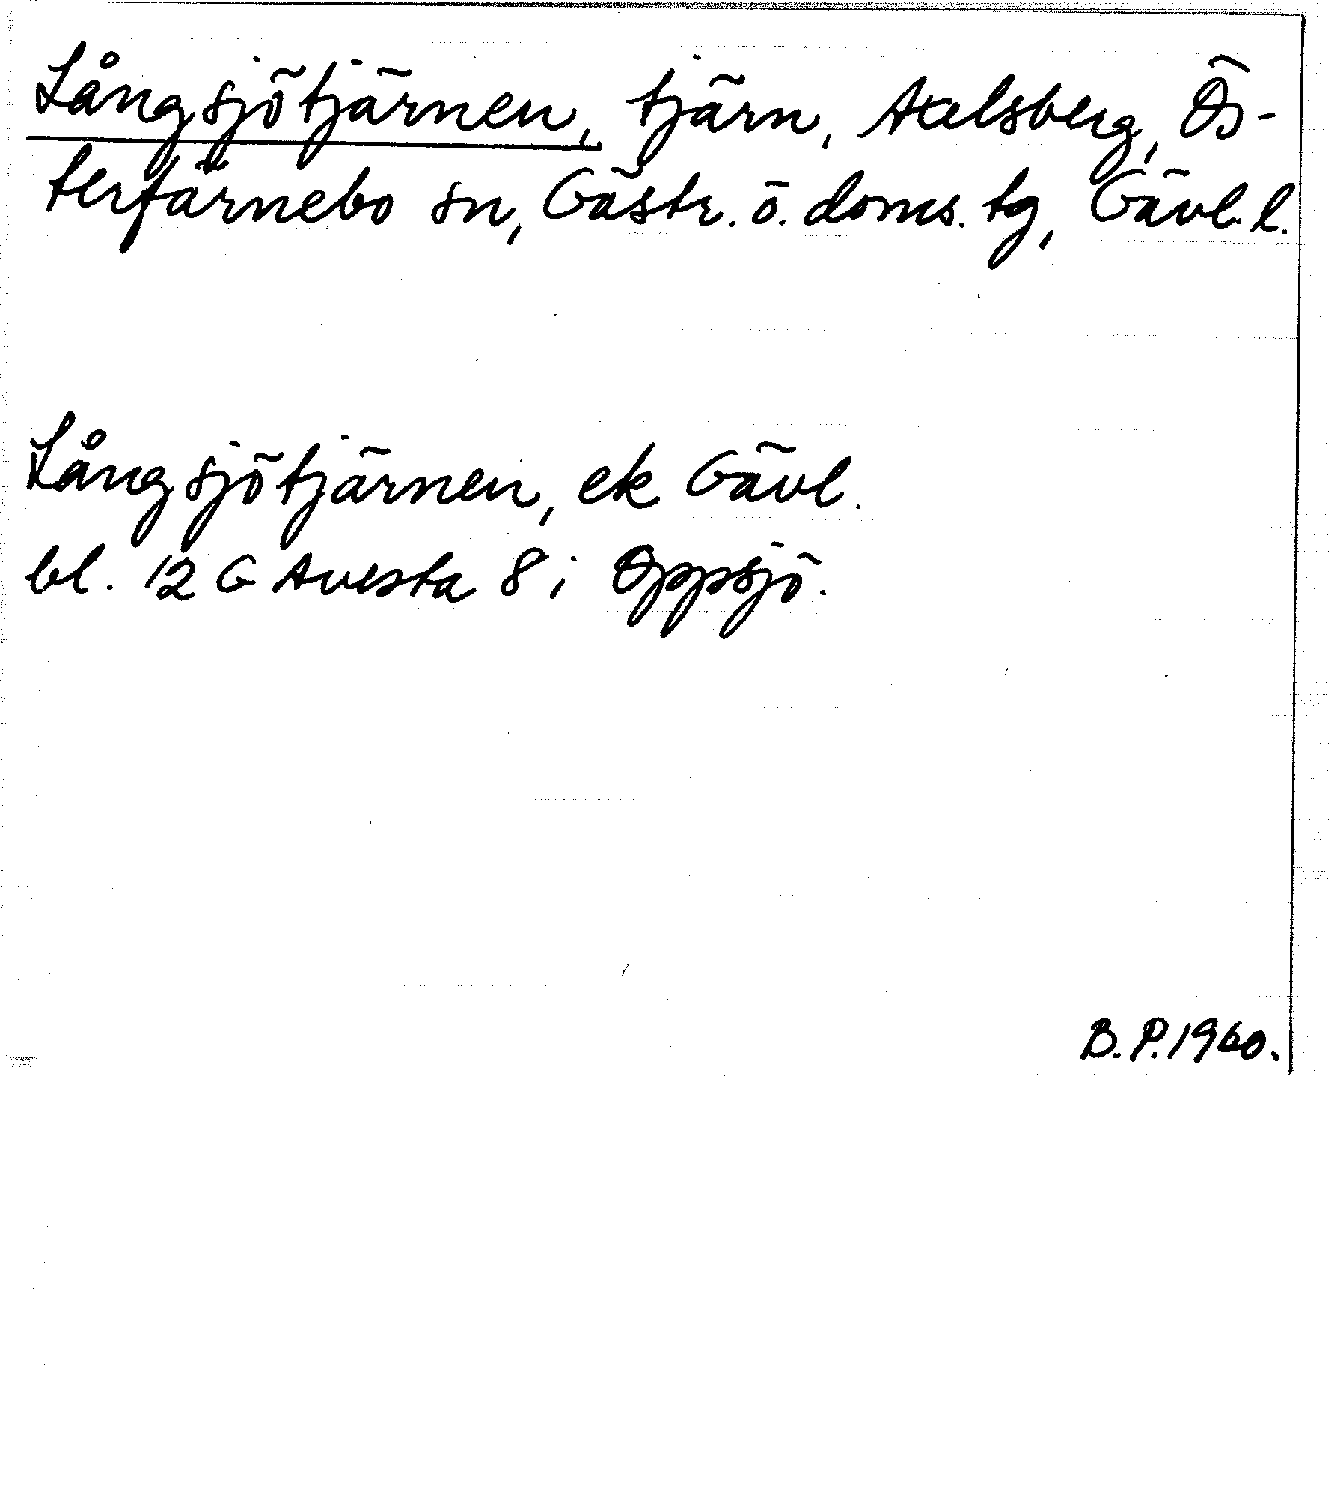 Långsjötjärnen, tjärn, Axelsberg, Ös-
terfärnebo sn, Gästr. ö. doms. tg, Gävl. l.
Långsjötjärnen, ek Gävl.
bl. 12 G Avesta 8 i Oppsjö.
B. P. 1960.